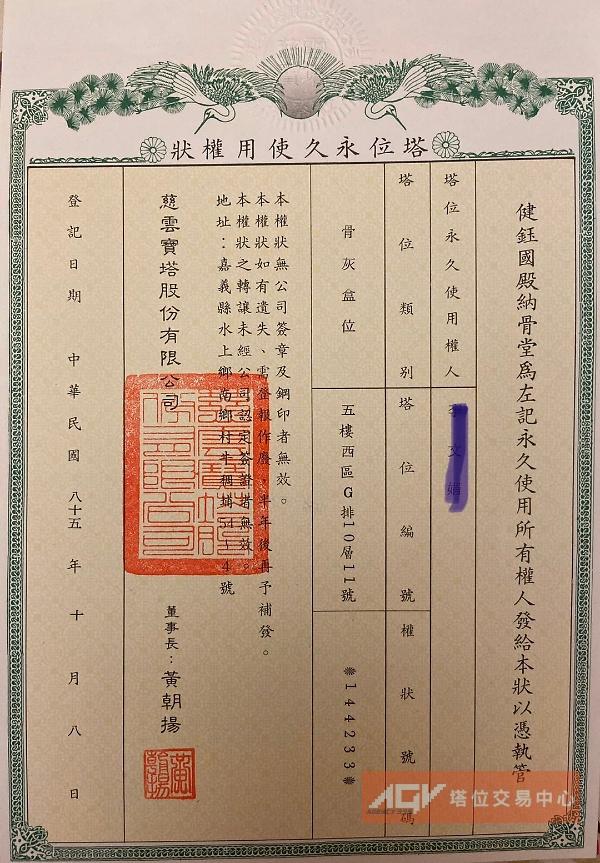 塔位永久使用權狀
健鈺國殿納骨堂爲左記永久使用所有權人發給本狀以憑執管
塔位永久使用權人
塔位類別
塔位編號
權狀號碼
骨灰盒位
五樓西區G排10層11號
※144233※
本權狀無公司簽章及鋼印者無效。
本權狀如有遺失、需登報作廢，半年後再予補發。
本權狀之轉讓未經公司認定簽證者無效。
地址：嘉義縣水上鄉南鄉村牛稠埔54-4號
慈雲寶塔股份有限公司
董事長：黃朝揚
登記日期 中華民國 八十五 年 十 月 八 日
AGV 塔位交易中心